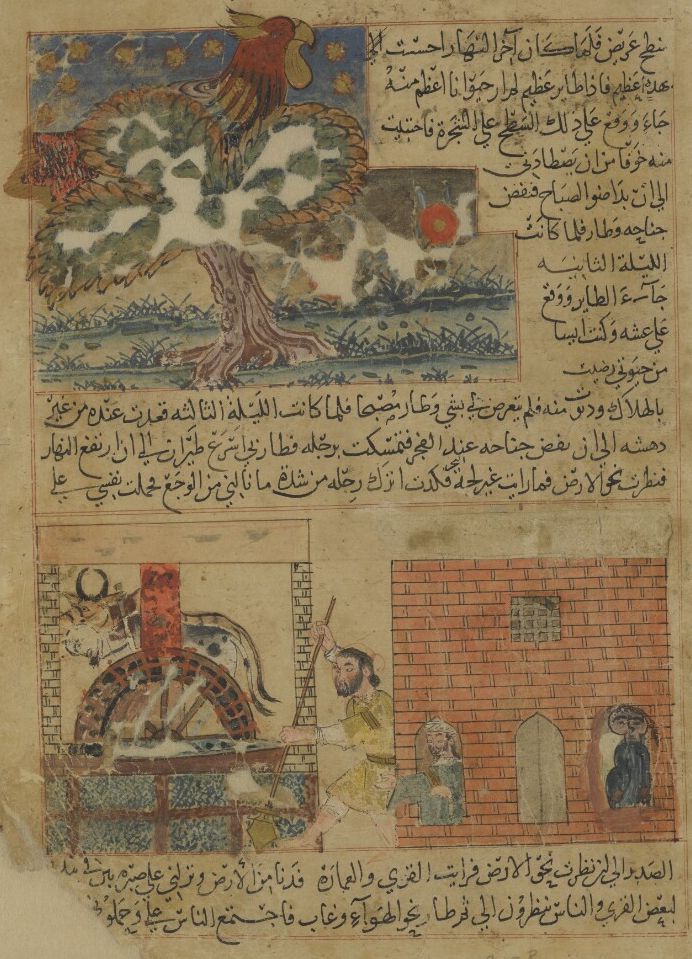 سطح عريض فلما كان آخر النهار احست
بهدة عظيم فاذا طاير عظيم لم ار حيوانا اعظم منه
جاء ووقع على ذلك السطح على الشجرة فاختبيت
منه خوفا من ان يصطادني
الى ان بدا ضو الصباح فنفض
جناحه وطار فلما كانت
الليلة الثانيه
جاء الطاير ووقع
على عشه وكنت ايسا
من حيوتي رضيت
بالهلاك ودنوت منه فلم يتعرض لي بشي وطار مصبحا فلما كانت الليلة الثالثه قعدت عنده من غير
دهشه الى ان نفض جناحه عند الفجر فتمسكت برجله فطار بي اسرع طيران الى ان ارتفع النهار
فنظرت نحو الارض فما رايت غير لجة فكدت اترك رجله من شدة ما نالني من الوجع فحملت نفسي على
الصبر الى ان نظرت نحو الارض فرايت القرى والعمارة فدنا من الارض وتركني على صبره تبن في
لبعض القرى والناس ينظرون الي ثم طار نحو الهواء وغاب فاجتمع الناس علي وحملوني